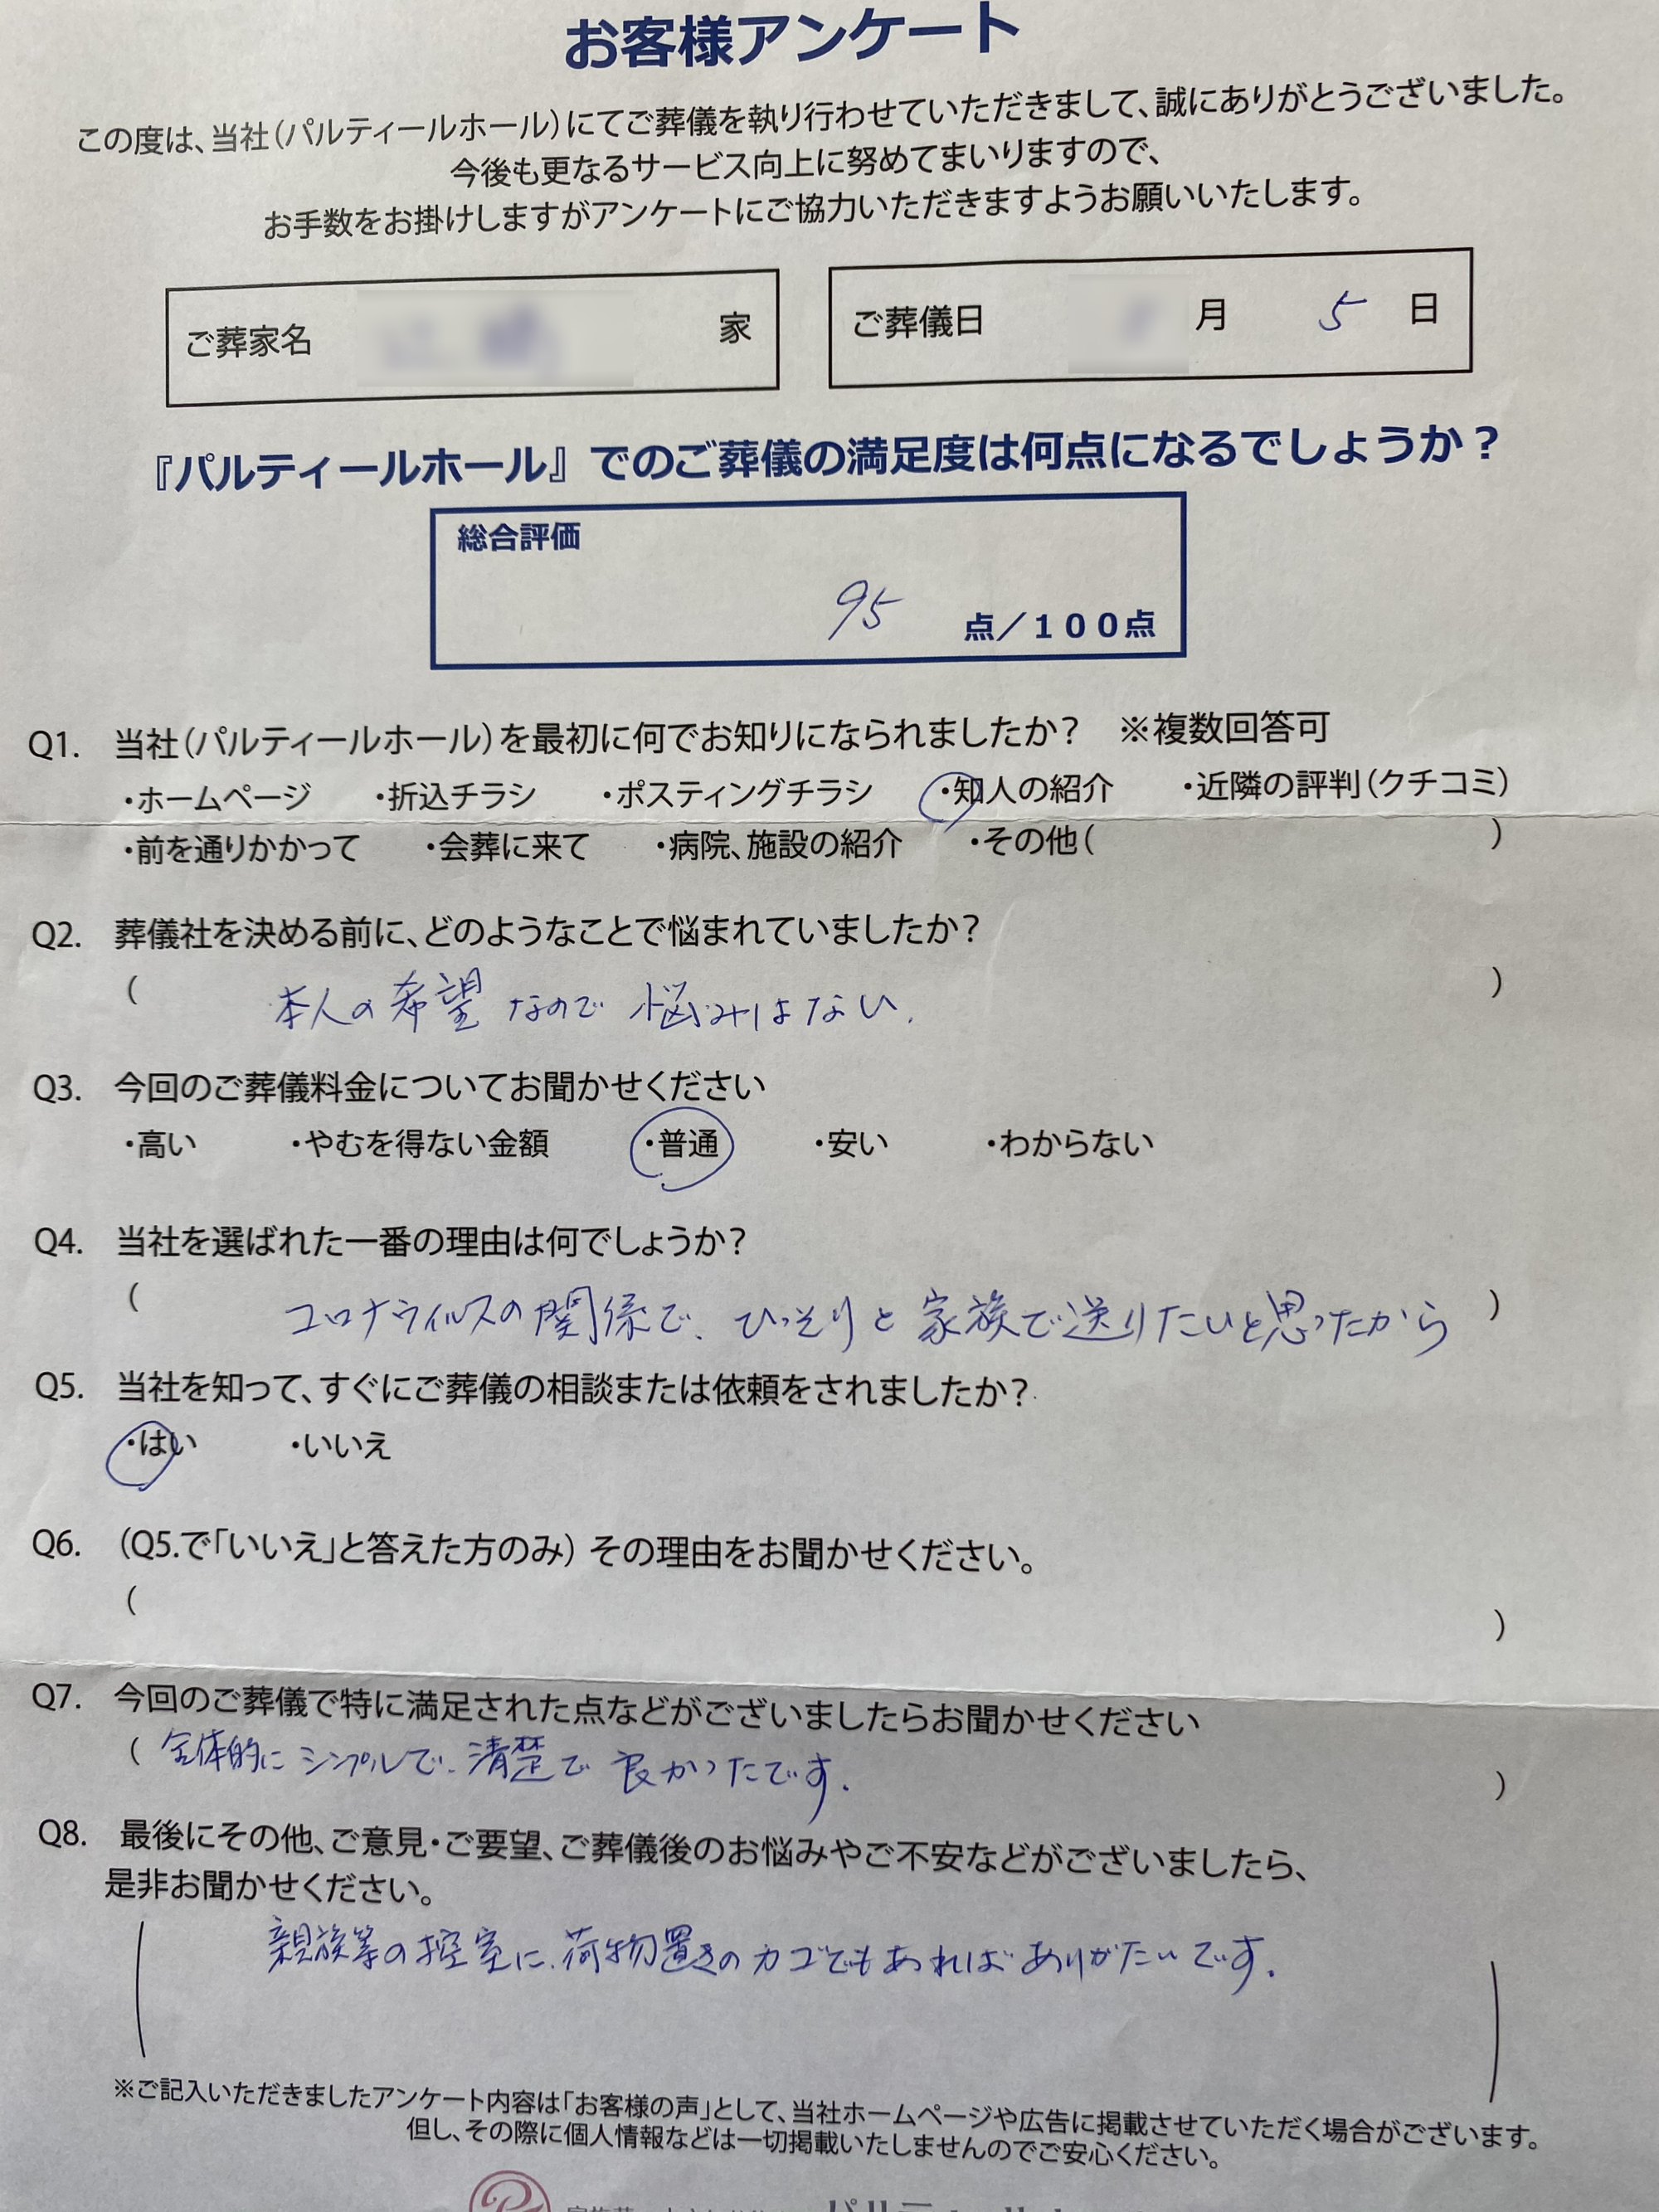 お客様アンケート
この度は、当社(パルティールホール)にてご葬儀を執り行わせていただきまして、誠にありがとうございました。
今後も更なるサービス向上に努めてまいりますので、
お手数をお掛けしますがアンケートにご協力いただきますようお願いいたします。
ご葬家名 家 ご葬儀日 月 5 日
『パルティールホール』でのご葬儀の満足度は何点になるでしょうか?
総合評価
95 点/100点
Q1. 当社(パルティールホール)を最初に何でお知りになられましたか? ※複数回答可
・ホームページ ・折込チラシ ・ポスティングチラシ ・知人の紹介 ・近隣の評判(クチコミ)
・前を通りかかって ・会葬に来て ・病院、施設の紹介 ・その他( )
Q2. 葬儀社を決める前に、どのようなことで悩まれていましたか?
( 本人の希望なので悩みはない. )
Q3. 今回のご葬儀料金についてお聞かせください
・高い ・やむを得ない金額 ・普通 ・安い ・わからない
Q4. 当社を選ばれた一番の理由は何でしょうか?
( コロナウィルスの関係で、ひっそりと家族で送りたいと思ったから )
Q5. 当社を知って、すぐにご葬儀の相談または依頼をされましたか?
・はい ・いいえ
Q6. (Q5.で「いいえ」と答えた方のみ) その理由をお聞かせください。
( )
Q7. 今回のご葬儀で特に満足された点などがございましたらお聞かせください
( 全体的にシンプルで、清楚で良かったです. )
Q8. 最後にその他、ご意見・ご要望、ご葬儀後のお悩みやご不安などがございましたら、
是非お聞かせください。
( 親族等の控室に、荷物置きのカゴでもあればありがたいです. )
※ご記入いただきましたアンケート内容は「お客様の声」として、当社ホームページや広告に掲載させていただく場合がございます。
但し、その際に個人情報などは一切掲載いたしませんのでご安心ください。